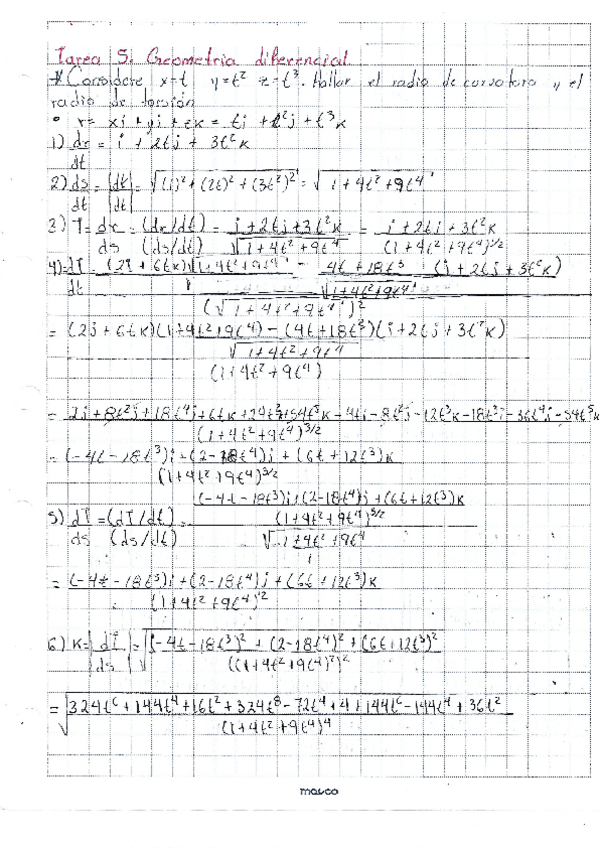 Tarea 5. Geometria diferencial
* Considere x=t y=t² z=t³. Hallar el radio de curvatura y el
radio de torsión
• r= xi + yj + zk = ti + t²j + t³k
1) dr/dt = i + 2tj + 3t²k
2) ds/dt = |dr/dt| = √((1)² + (2t)² + (3t²)²) = √(1+4t²+9t⁴)
3) T = dr/ds = (dr/dt)/(ds/dt) = (i+2tj+3t²k)/√(1+4t²+9t⁴) = (i+2tj+3t²k)/(1+4t²+9t⁴)^1/2
4) dT/dt = ((2j+6tk)√(1+4t²+9t⁴) - (4t+18t³)/√(1+4t²+9t⁴) (i+2tj+3t²k))/(√(1+4t²+9t⁴))²
= ((2j+6tk)(1+4t²+9t⁴)-(4t+18t³)(i+2tj+3t²k))/√(1+4t²+9t⁴)
(1+4t²+9t⁴)
= (2j+8t²j+18t⁴j+6tk+24t³k+54t⁵k-4ti-8t²j-12t³k-18t³i-36t⁴j-54t⁵k)/(1+4t²+9t⁴)^3/2
= ((-4t-18t³)i+(2-18t⁴)j+(6t+12t³)k)/(1+4t²+9t⁴)^3/2
5) dT/ds = (dT/dt)/(ds/dt) = ((-4t-18t³)i+(2-18t⁴)j+(6t+12t³)k)/(1+4t²+9t⁴)^3/2
√(1+4t²+9t⁴)/1
= ((-4t-18t³)i+(2-18t⁴)j+(6t+12t³)k)/(1+4t²+9t⁴)²
6) K=|dT/ds| = √(((-4t-18t³)² + (2-18t⁴)² + (6t+12t³)²)/((1+4t²+9t⁴)²)²)
= √((324t⁶+144t⁴+16t²+324t⁸-72t⁴+4+144t⁶+144t⁴+36t²)/(1+4t²+9t⁴)⁴)
marco